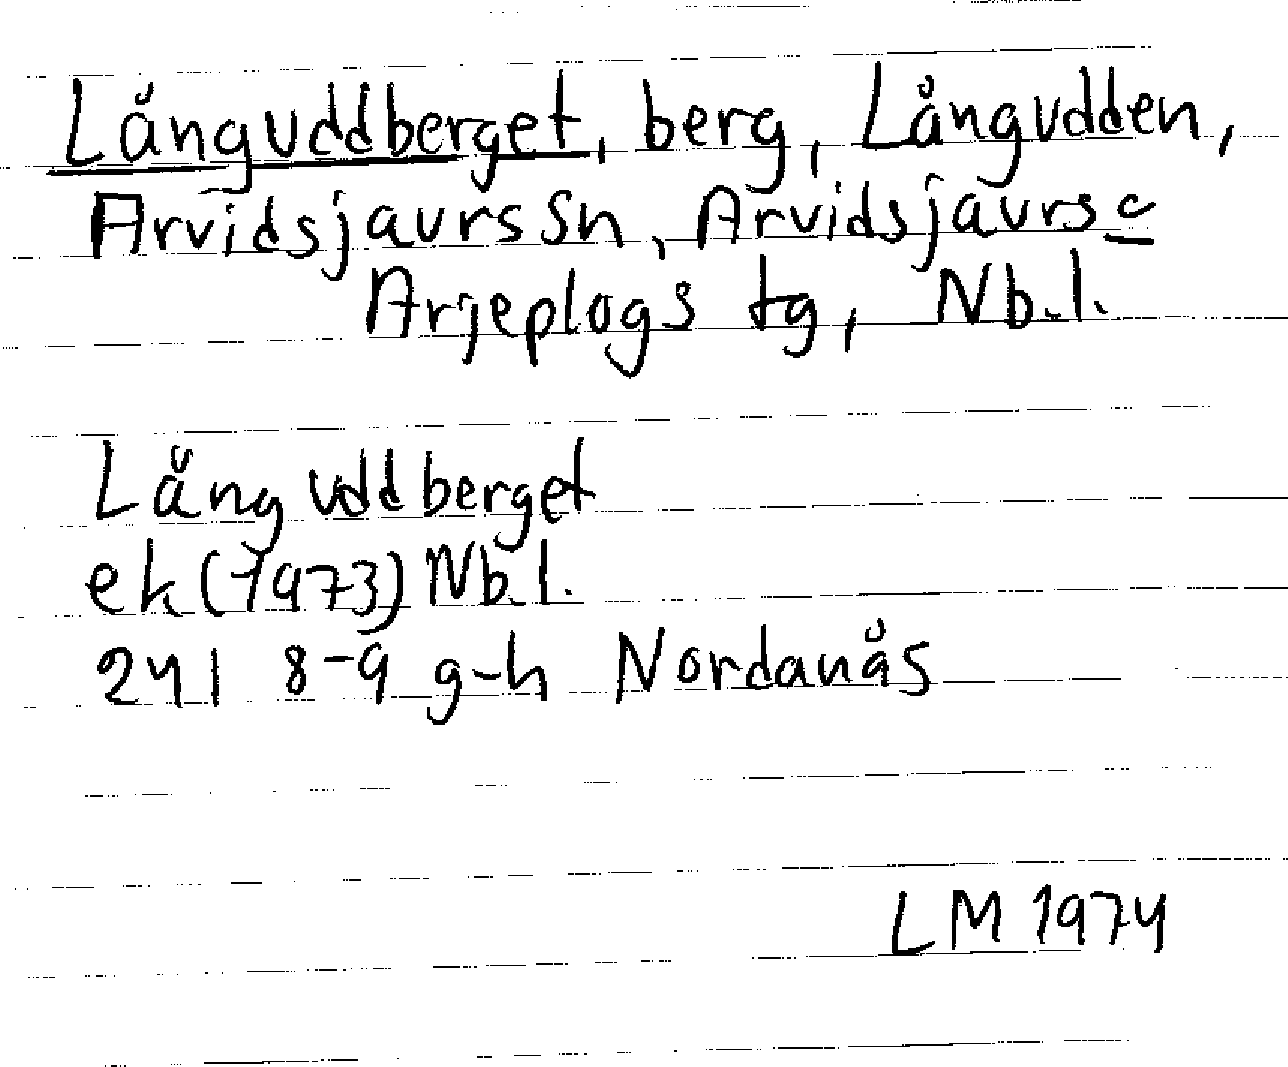 Långuddberget, berg, Långudden,
Arvidsjaurs sn, Arvidsjaurs c
Arjeplogs tg, Nb.l.
Långuddberget
ek (1973) Nb.l.
24I 8-9 g-h Nordanås
LM 1974